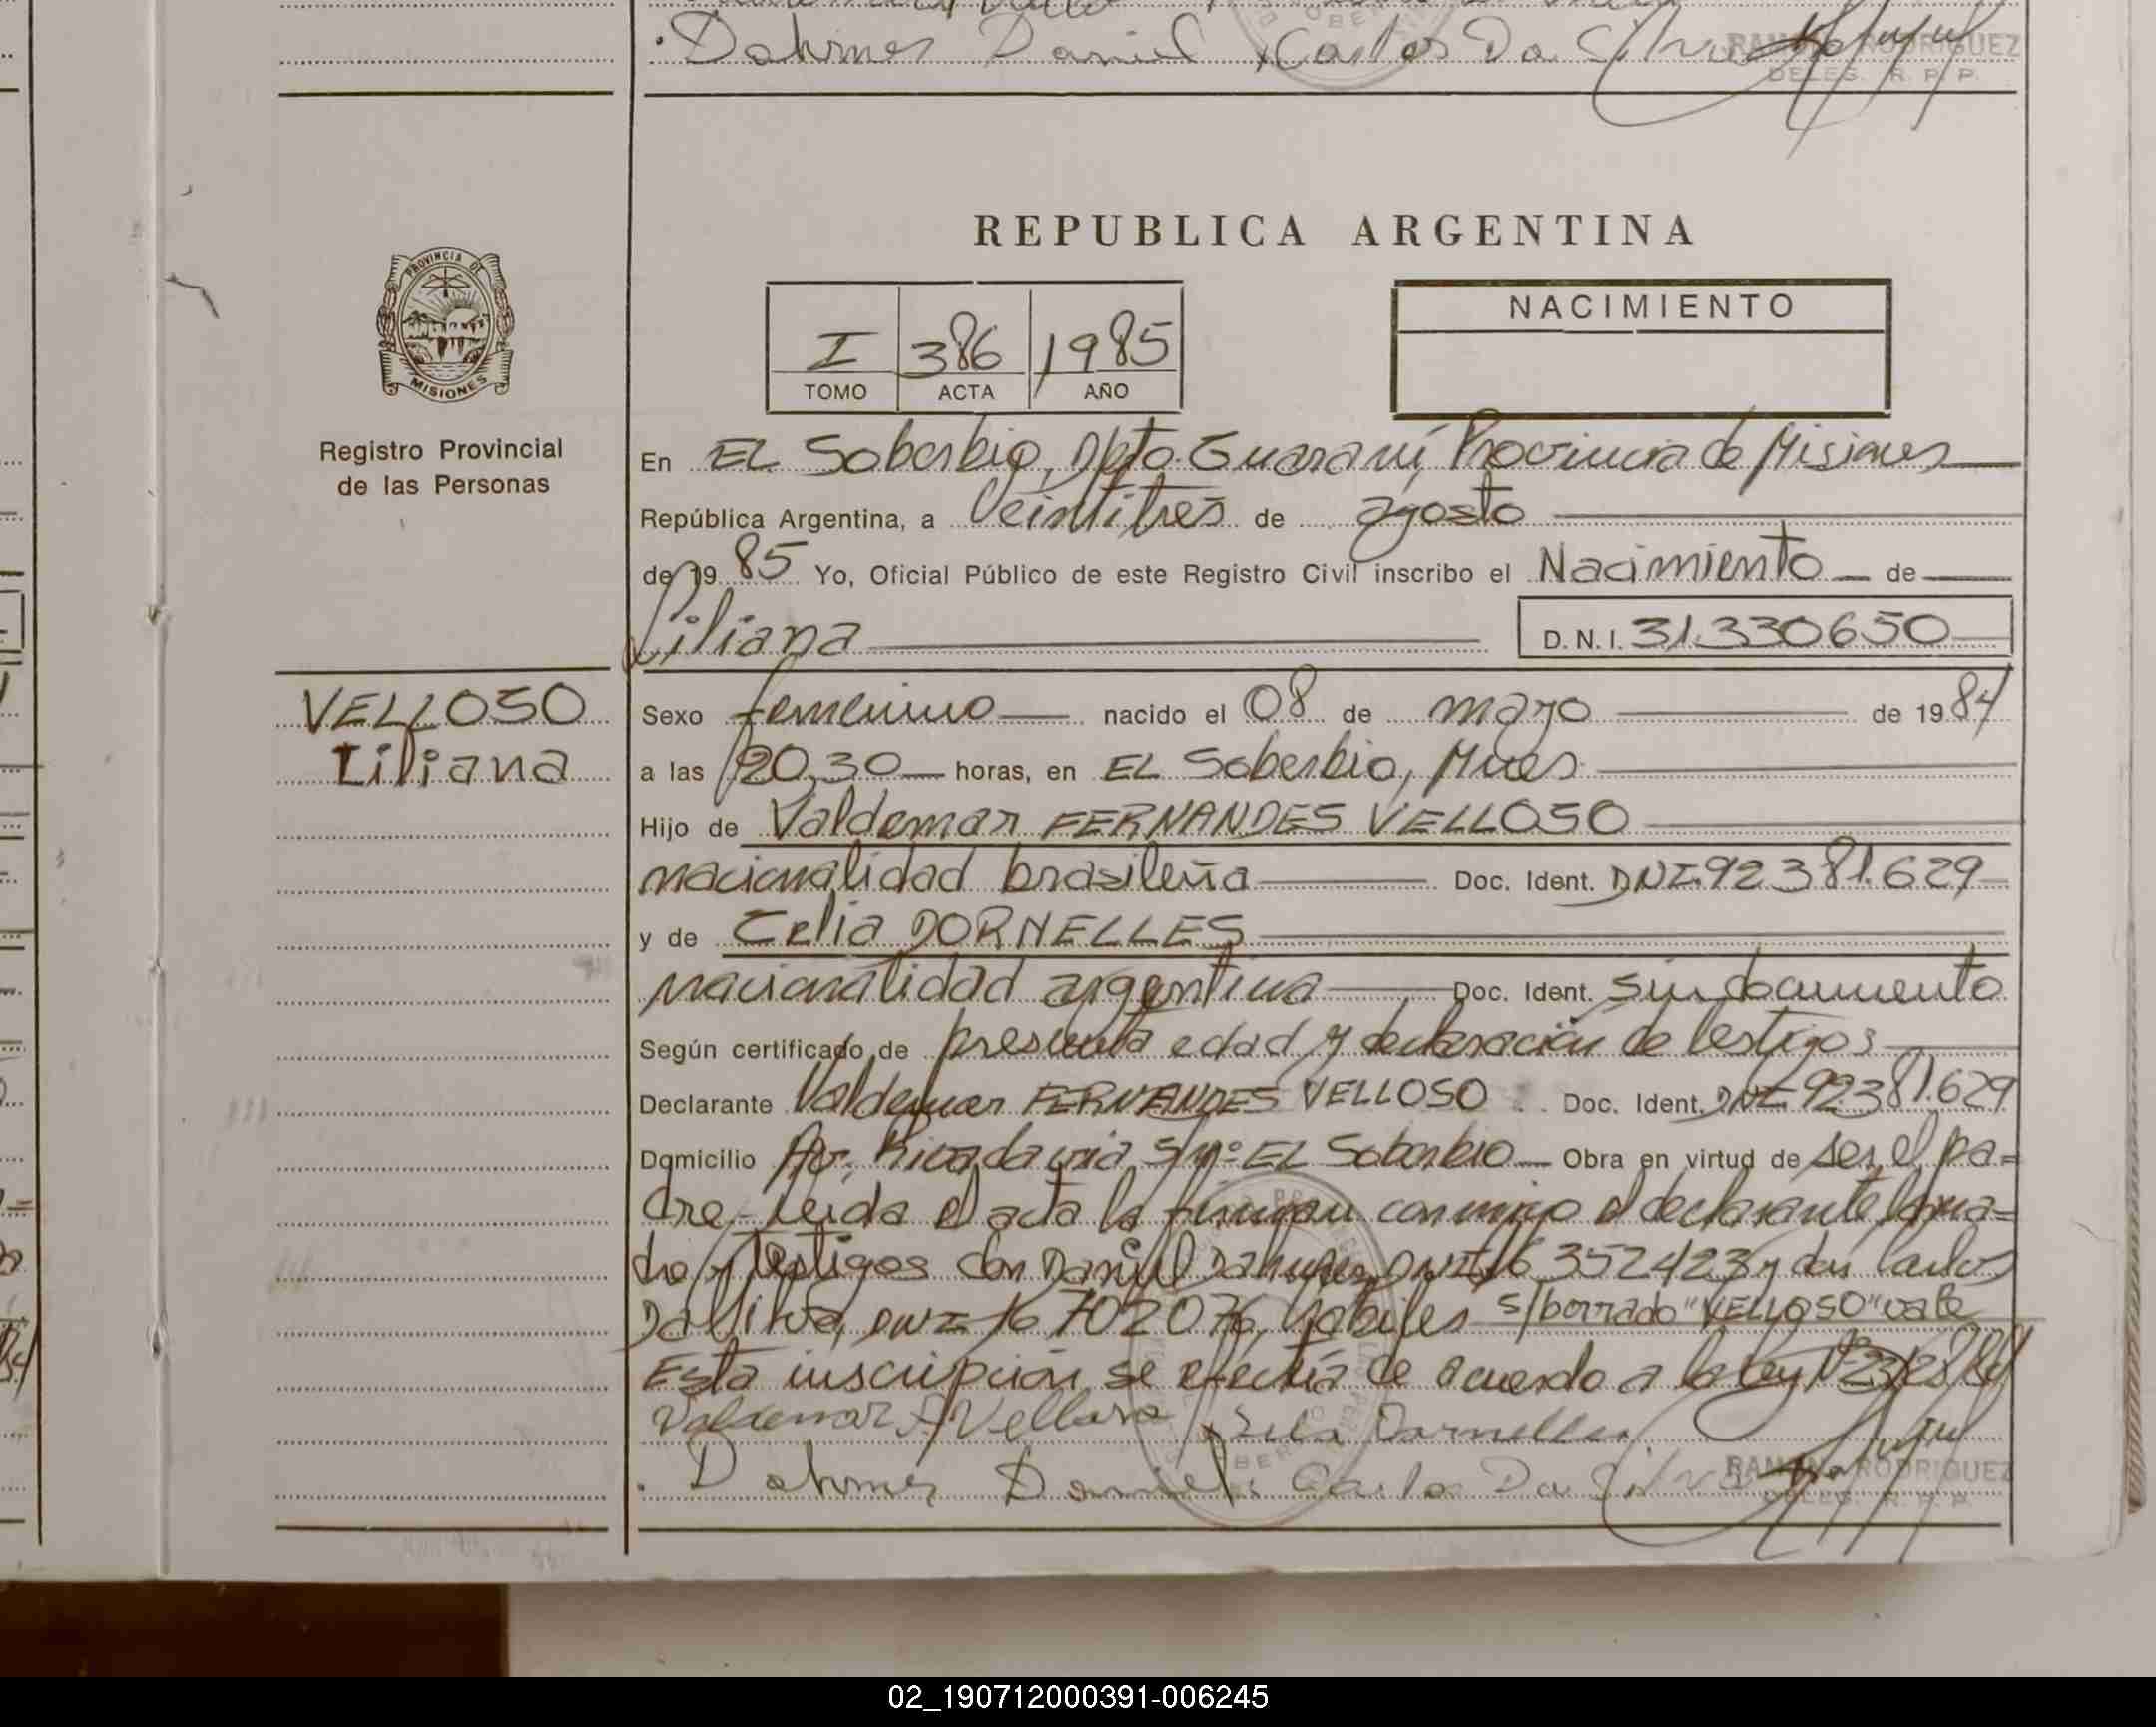 Dahmer Daniel x Carlos Da Silva
RAMON RODRIGUEZ
DELEG. R. P. P.
REPUBLICA ARGENTINA
PROVINCIA DE
MISIONES
Registro Provincial
de las Personas
I 386 1985
TOMO ACTA AÑO
NACIMIENTO
En EL Soberbio, Dpto. Guaraní, Provincia de Misiones
República Argentina, a Veintitres de agosto
de 1985 Yo, Oficial Público de este Registro Civil inscribo el Nacimiento de
Liliana D.N.I. 31.330650
VELLOSO
Liliana
Sexo femenino nacido el 08 de mayo de 1984
a las 20,30 horas, en EL Soberbio, Mnes
Hijo de Valdemar FERNANDES VELLOSO
nacionalidad brasileña Doc. Ident. DNI.92.381.629
y de Celia DORNELLES
nacionalidad argentina Doc. Ident. sin documento
Según certificado de presunta edad y declaración de testigos
Declarante Valdemar FERNANDES VELLOSO Doc. Ident. DNI 92.381.629
Domicilio Av. Rivadavia S/nº EL Soberbio Obra en virtud de ser el pa=
dre,- Leida el acta la firman conmigo el declarante,
y testigos don Daniel Dahmer, DNI 16 352423 y don Carlos
Da Silva, DNI 16 702076, hábiles s/borrado "VELLOSO" vale
Esta inscripción se efectúa de acuerdo a la ley Nº
Valdemar F Vellozo x Selia Dornelles
Dahmer Daniel Carlos Da Silva
RAMON RODRIGUEZ
DELEG. R. P. P.
02_190712000391-006245